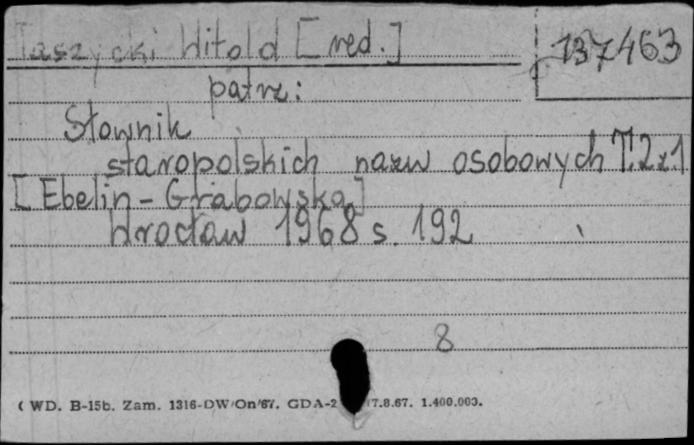 Taszycki Witold [red.]
137463
patrz:
Słownik
staropolskich nazw osobowych T.2 z 1
[Ebelin-Grabowska]
Wrocław 1968 s. 192
8
WD. B-15b. Zam. 1316-DW/On/67. GDA-2 7.8.67. 1.400.003.